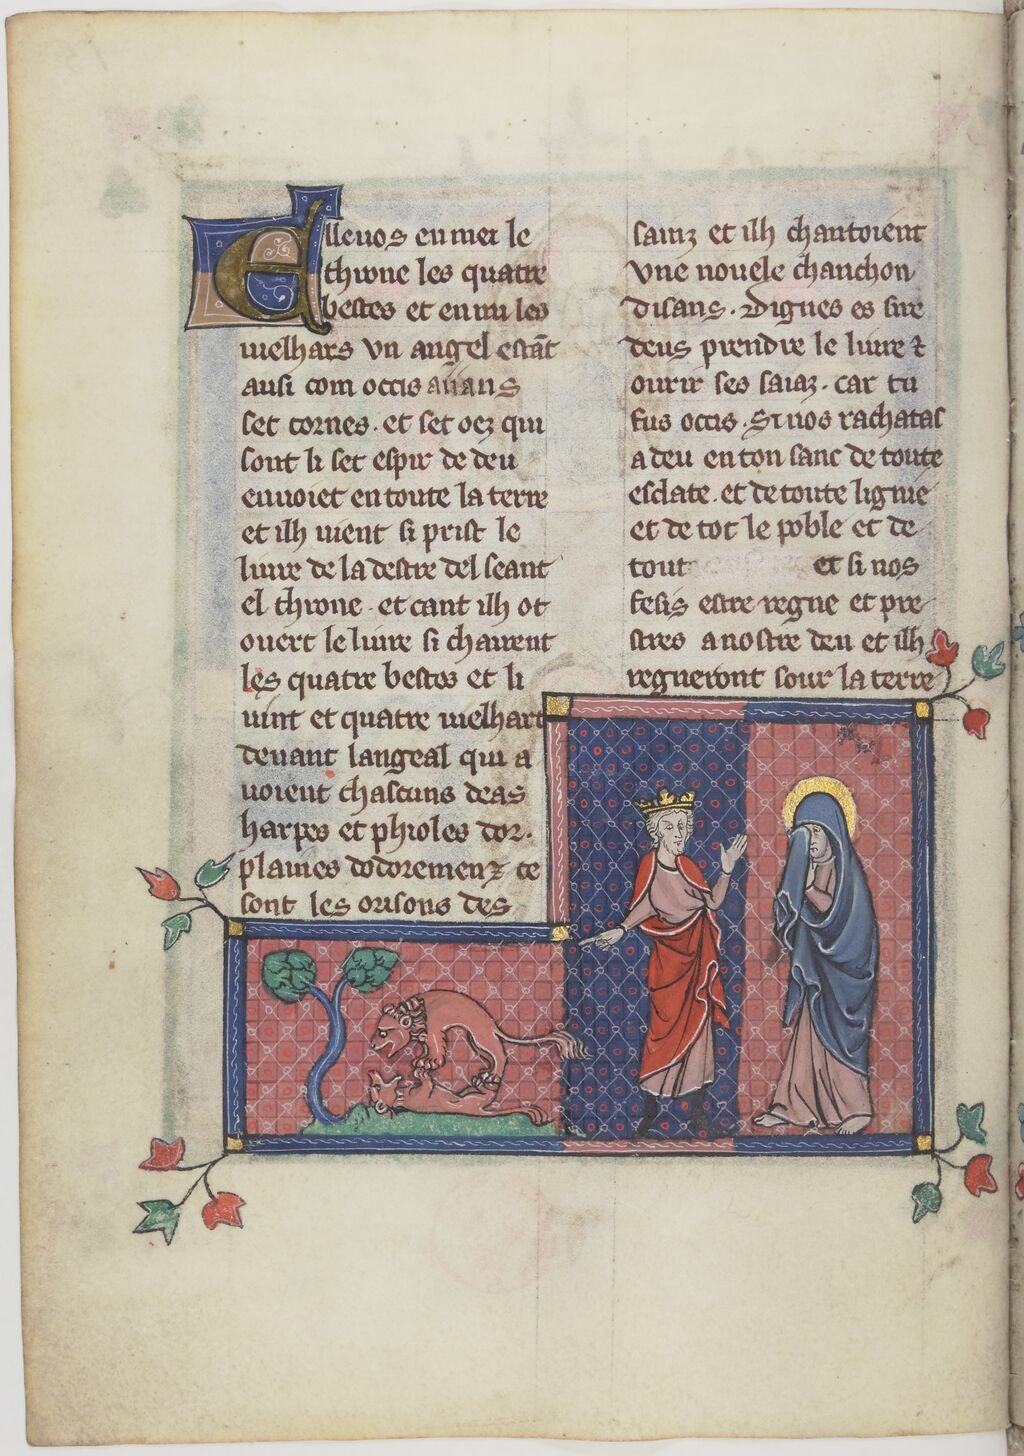 Elleuos enmei le
throne les quatre
bestes et enmi les
uielhars vn angel estāt
ausi com occis aiians
set cornes · et set oez qui
sont li set espir de deu
enuoiet en toute la terre
et ilh uient si prist le
liure de la destre del seant
el throne · et cant ilh ot
ouert le liure si chairent
les quatre bestes et li
uint et quatre uielhart
deuant langeal qui a
uoient chascuns deas
harpes et phioles dor ·
plaines dodoremenz ce
sont les orisons des
sainz et ilh chantoient
vne nouele chanchon
disans · Dignes es sire
deus prendre le liure ⁊
ourir ses saiaz · car tu
fus occis · Si nos rachatas
a deu en ton sanc de toute
esclate · et de toute lignie
et de tot le poble et de
tout et si nos
fesis estre regne et pre
stres a nostre deu et ilh
regneront sour la terre